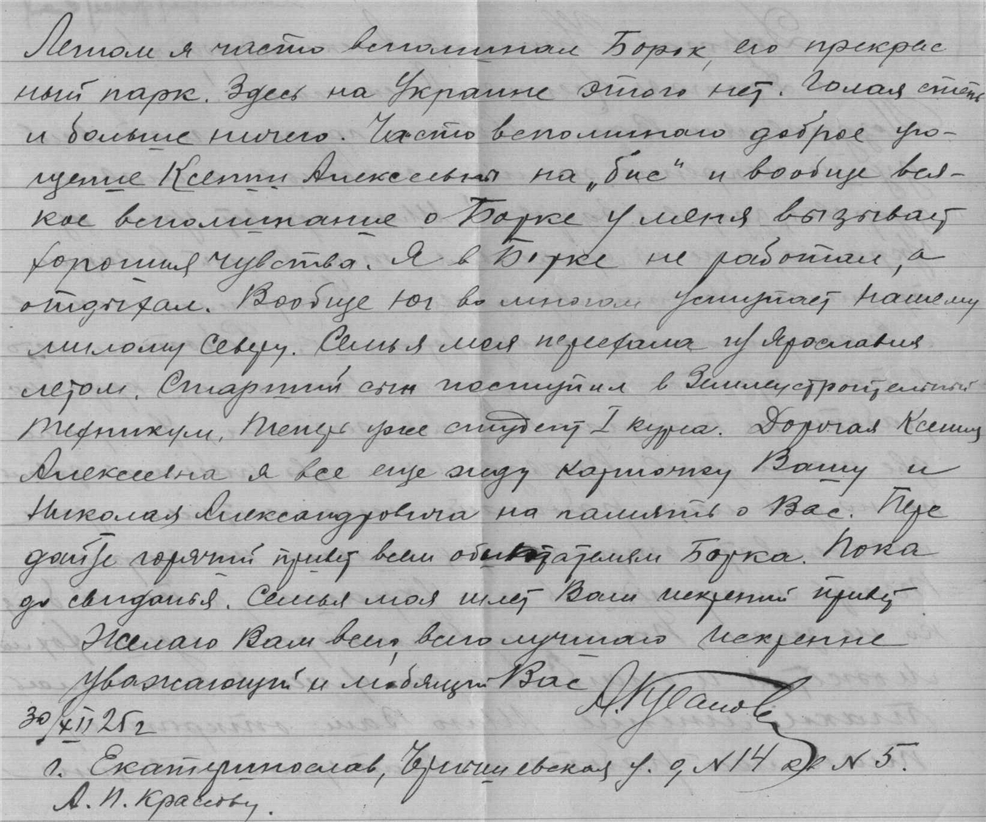 Летом я часто вспоминал Борок, его прекрас
ный парк. Здесь на Украине этого нет. Голая степь
и больше ничего. Часто вспоминаю доброе уго-
щение Ксении Алексеевны на „бис" и вообще вся-
кое вспоминание о Борке у меня вызывает
хорошия чувства. Я в Борке не работал, а
отдыхал. Вообще юг во многом уступает нашему
милому северу. Семья моя переехала из Ярославля
летом. Старший сын поступил в Землеустроительный
техникум. Теперь уже студент I курса. Дорогая Ксения
Алексеевна я все еще жду карточку Вашу и
Николая Александровича на память о Вас. Пере
дайте горячий привет всем обитателям Борка. Пока
до свиданья. Семья моя шлет Вам искрений привет
Желаю Вам всего, всего лучшаго Искренне
уважающий и любящий Вас
30/XII 25 г
г. Екатеринослав, у. д N 14 кв N 5.
А. П.